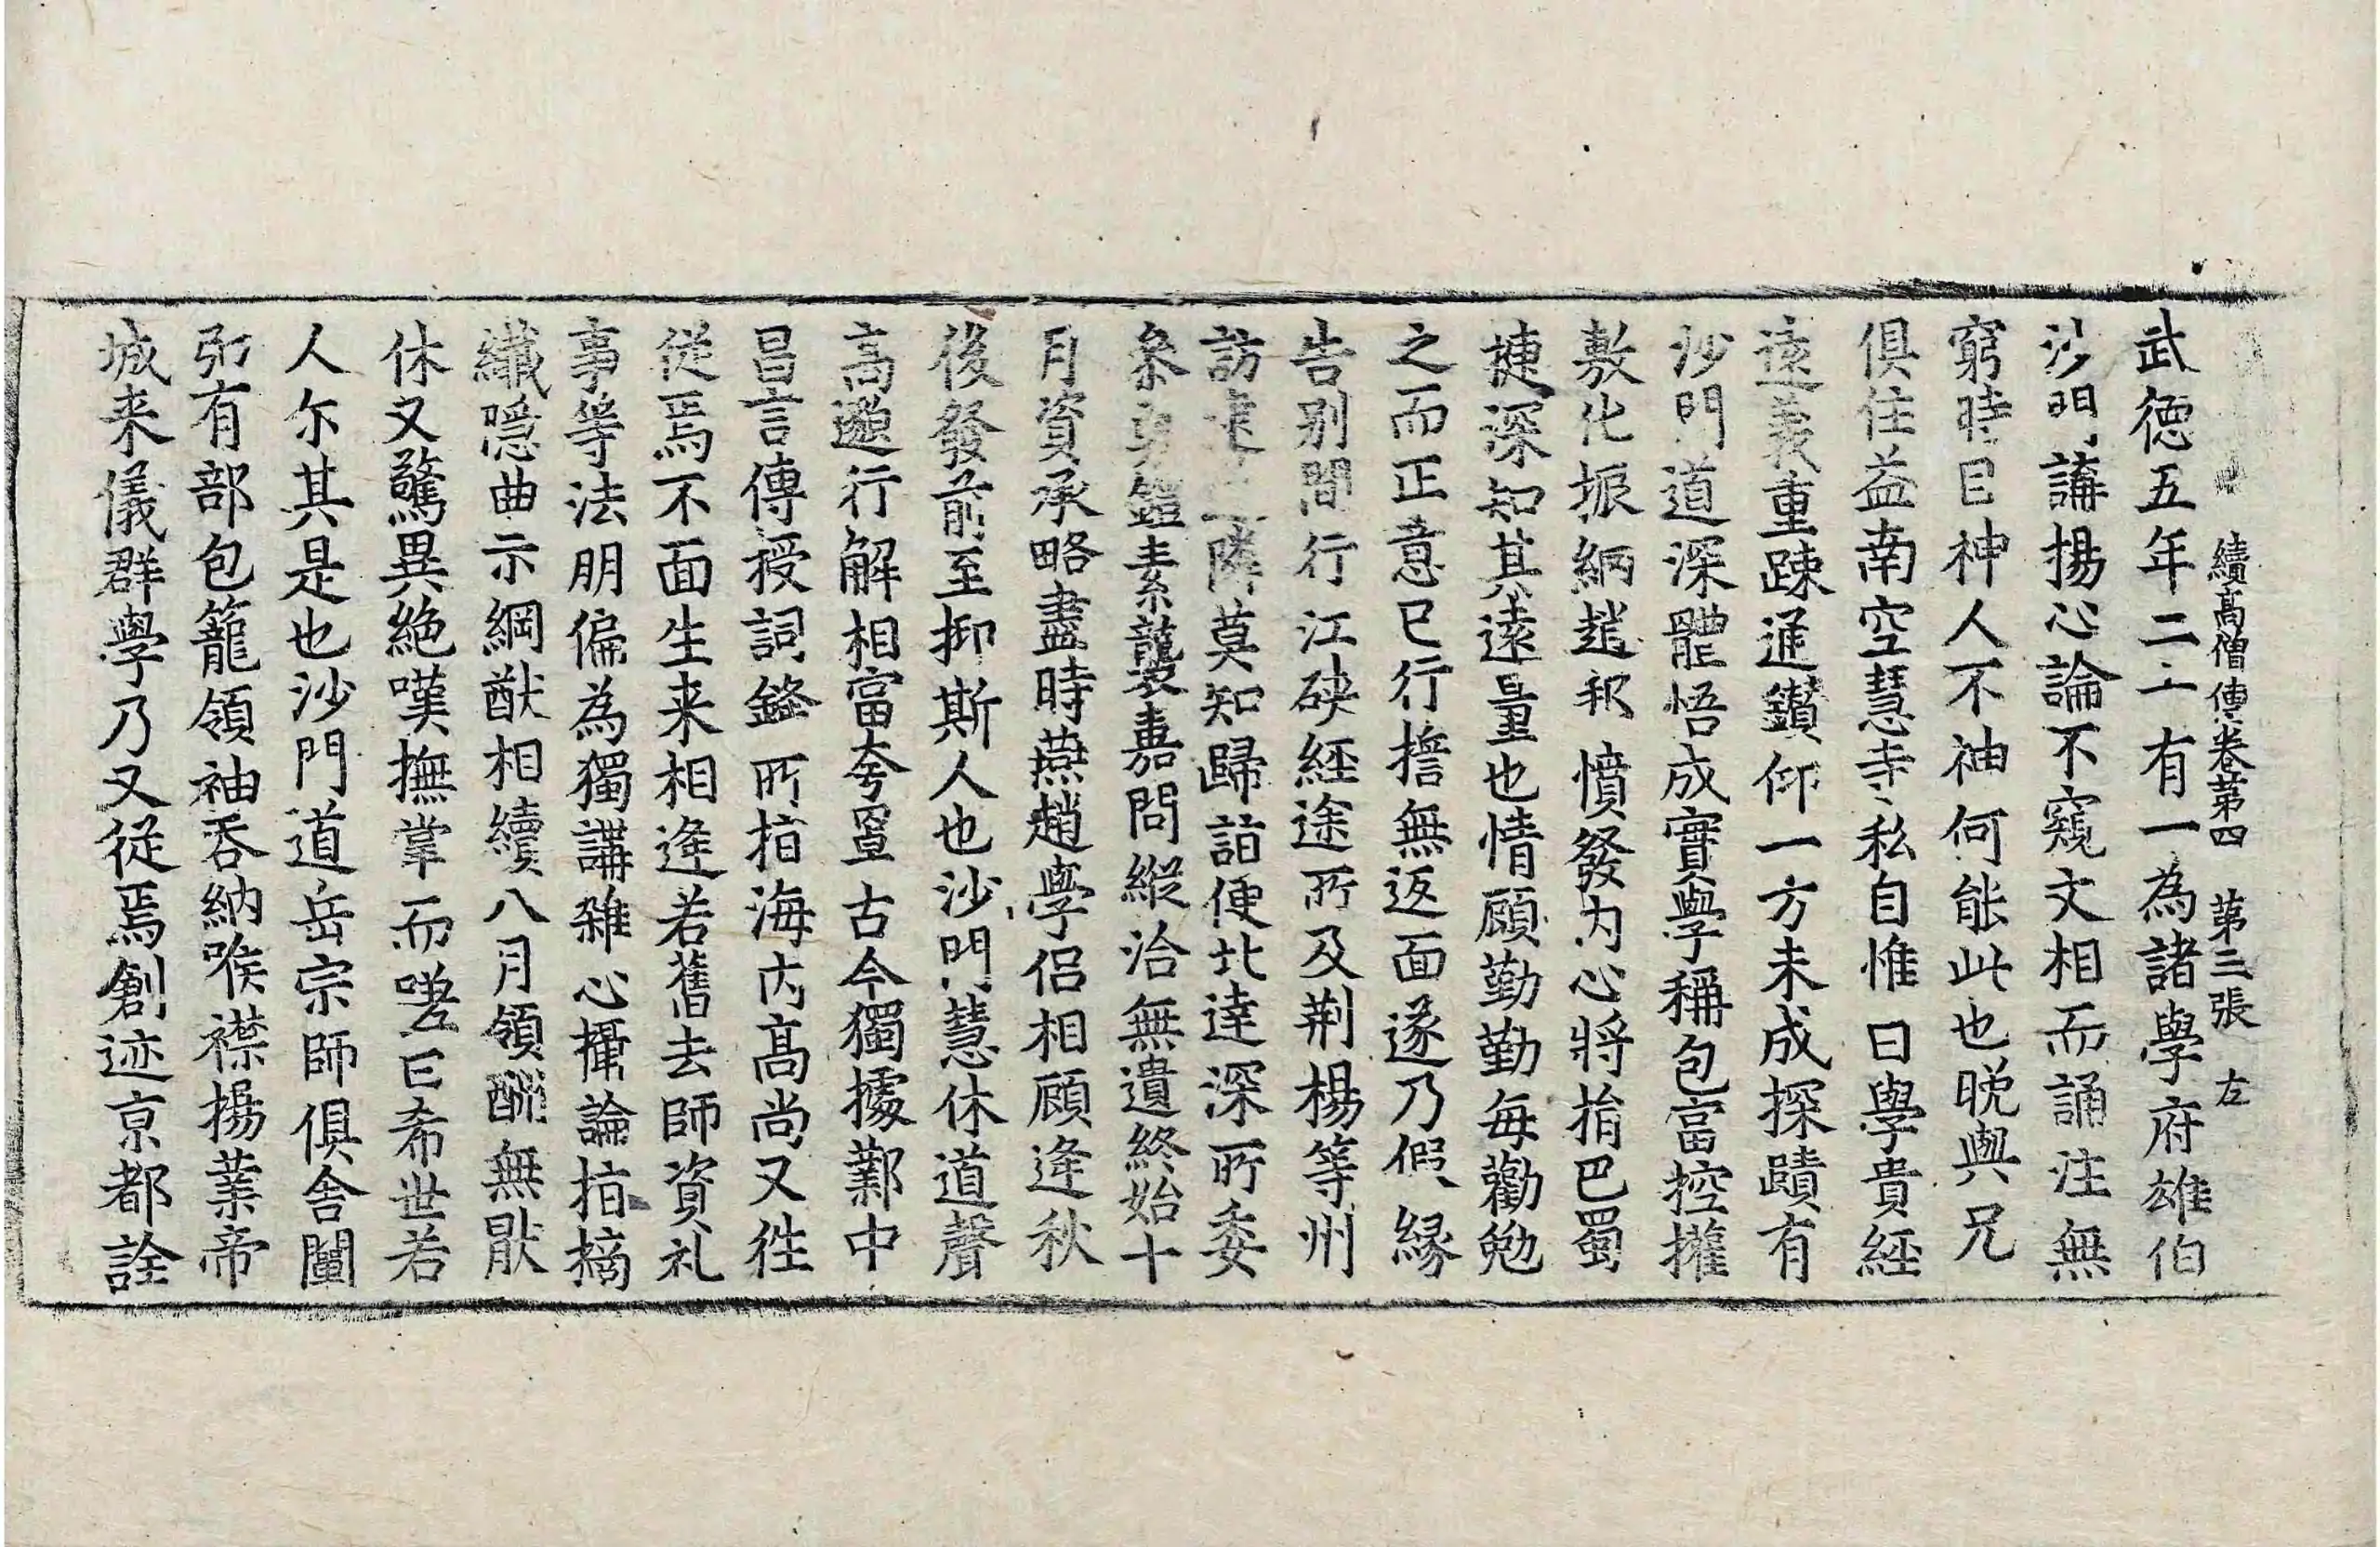 續高僧傳卷第四 第三張 左
武德五年二十有一為諸學府雄伯
沙門講揚心論不窺文相而誦注無
窮時目神人不神何能此也晚與兄
俱住益南空慧寺私自惟曰學貴經
遠義重踈通鑚仰一方未成探賾有
沙門道深體悟成實學稱包富控權
敷化振網趙邦憤發內心將捐巴蜀
捷深知其遠量也情顧勤勤每勸勉
之而正意已行擔無返面遂乃假緣
告別間行江硤經途所及荊楊等州
訪 隣莫知歸詣便北達深所委
叅勇鎧素襲嘉問縱洽無遺終始十
月資承略盡時燕趙學侶相顧逢秋
後發前至抑斯人也沙門慧休道聲
高邈行解相富夸罩古今獨據鄴中
昌言傳授詞鋒所指海內高尚又徃
從焉不面生来相逢若舊去師資礼
事等法朋偏為獨講雜心攝論指摘
纖隱曲示綱猷相續八月領酬無猒
休又驚異絶嘆撫掌而嗟曰希世若
人尒其是也沙門道岳宗師俱舍闡
弘有部包籠領袖吞納喉襟揚業帝
城来儀群學乃又從焉創迹京都詮